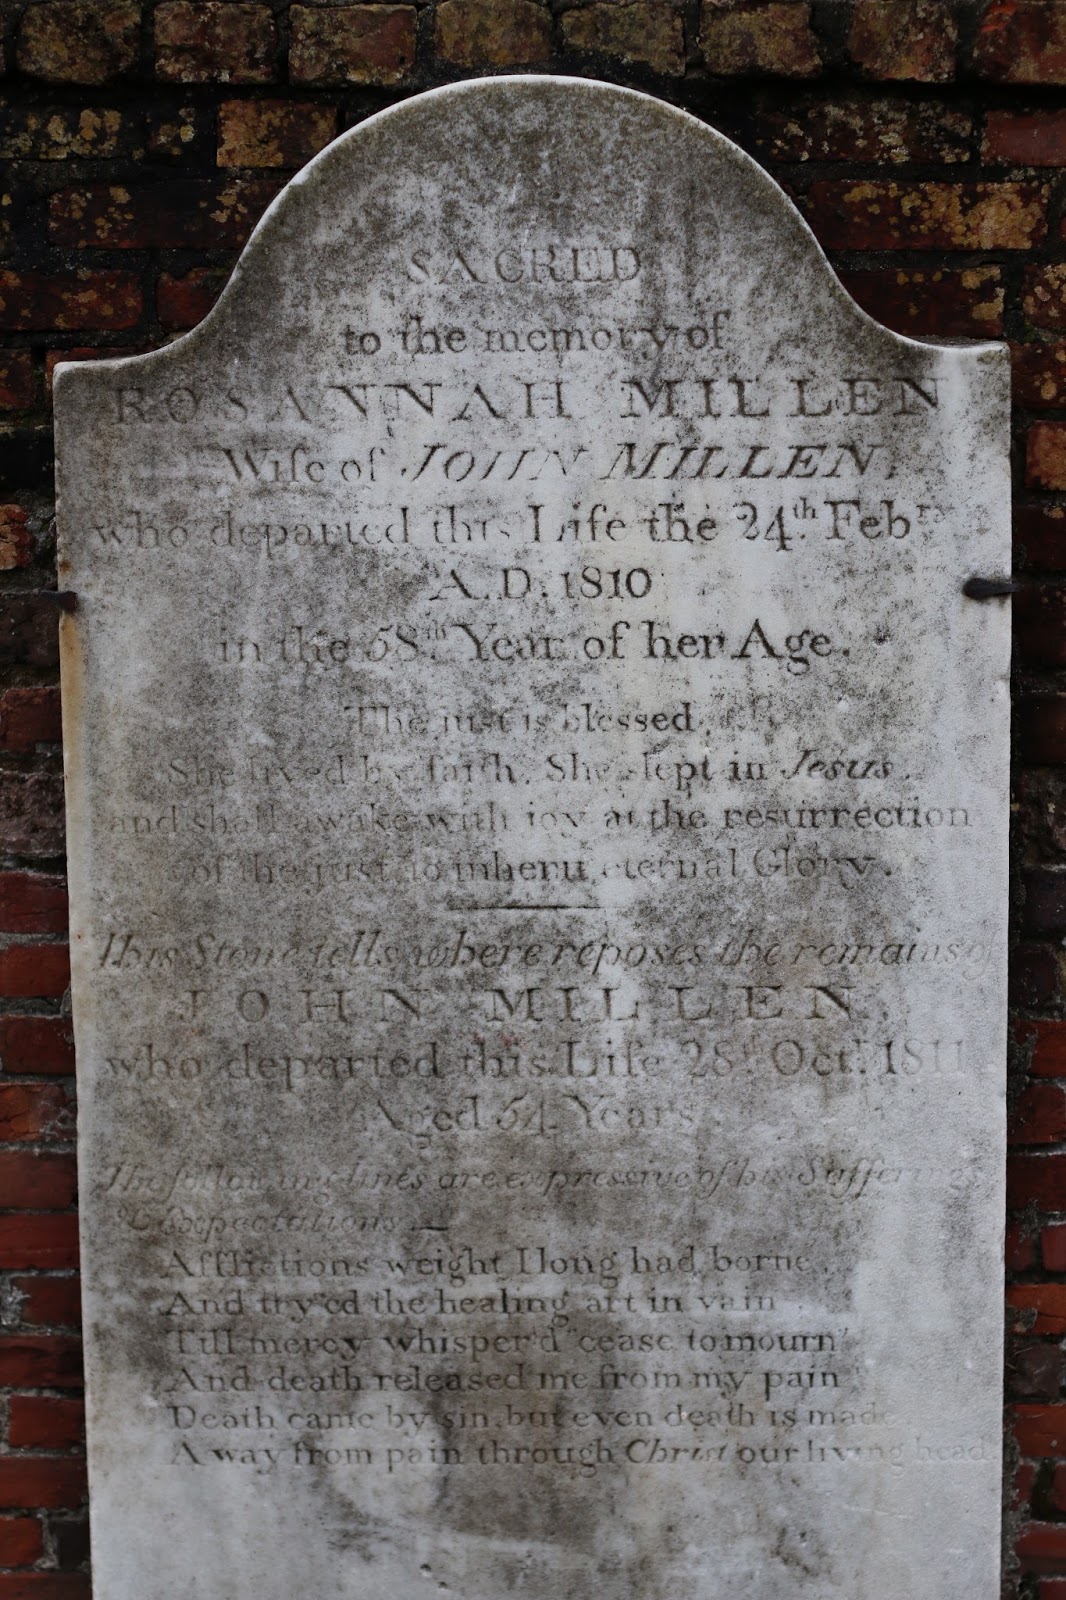 SACRED
to the memory of
ROSANNAH MILLEN
Wife of JOHN MILLEN,
who departed this Life the 24th. Febry
A.D. 1810
in the 58th. Year of her Age.
The just is blessed.
She lived by faith. She slept in Jesus.
and shall awake with joy at the resurrection
of the just to inherit eternal Glory.
This Stone tells where reposes the remains of
JOHN MILLEN,
who departed this Life 28th Octr. 1811
Aged 54 Years
The following lines are expressive of his Sufferings
& expectations —
Afflictions weight I long had borne
And try'ed the healing art in vain
Till mercy whisper'd "cease to mourn"
And death released me from my pain
Death came by sin, but even death is made
A way from pain through Christ our living head